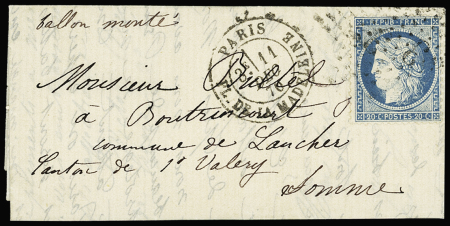 ballon monté
PARIS
11
PL. DE LA MADELEINE
REPUB. FRANC.
20 C. POSTES 20 C.
Monsieur
à Boutrincourt
commune de Laucher
Canton de St Valery
Somme